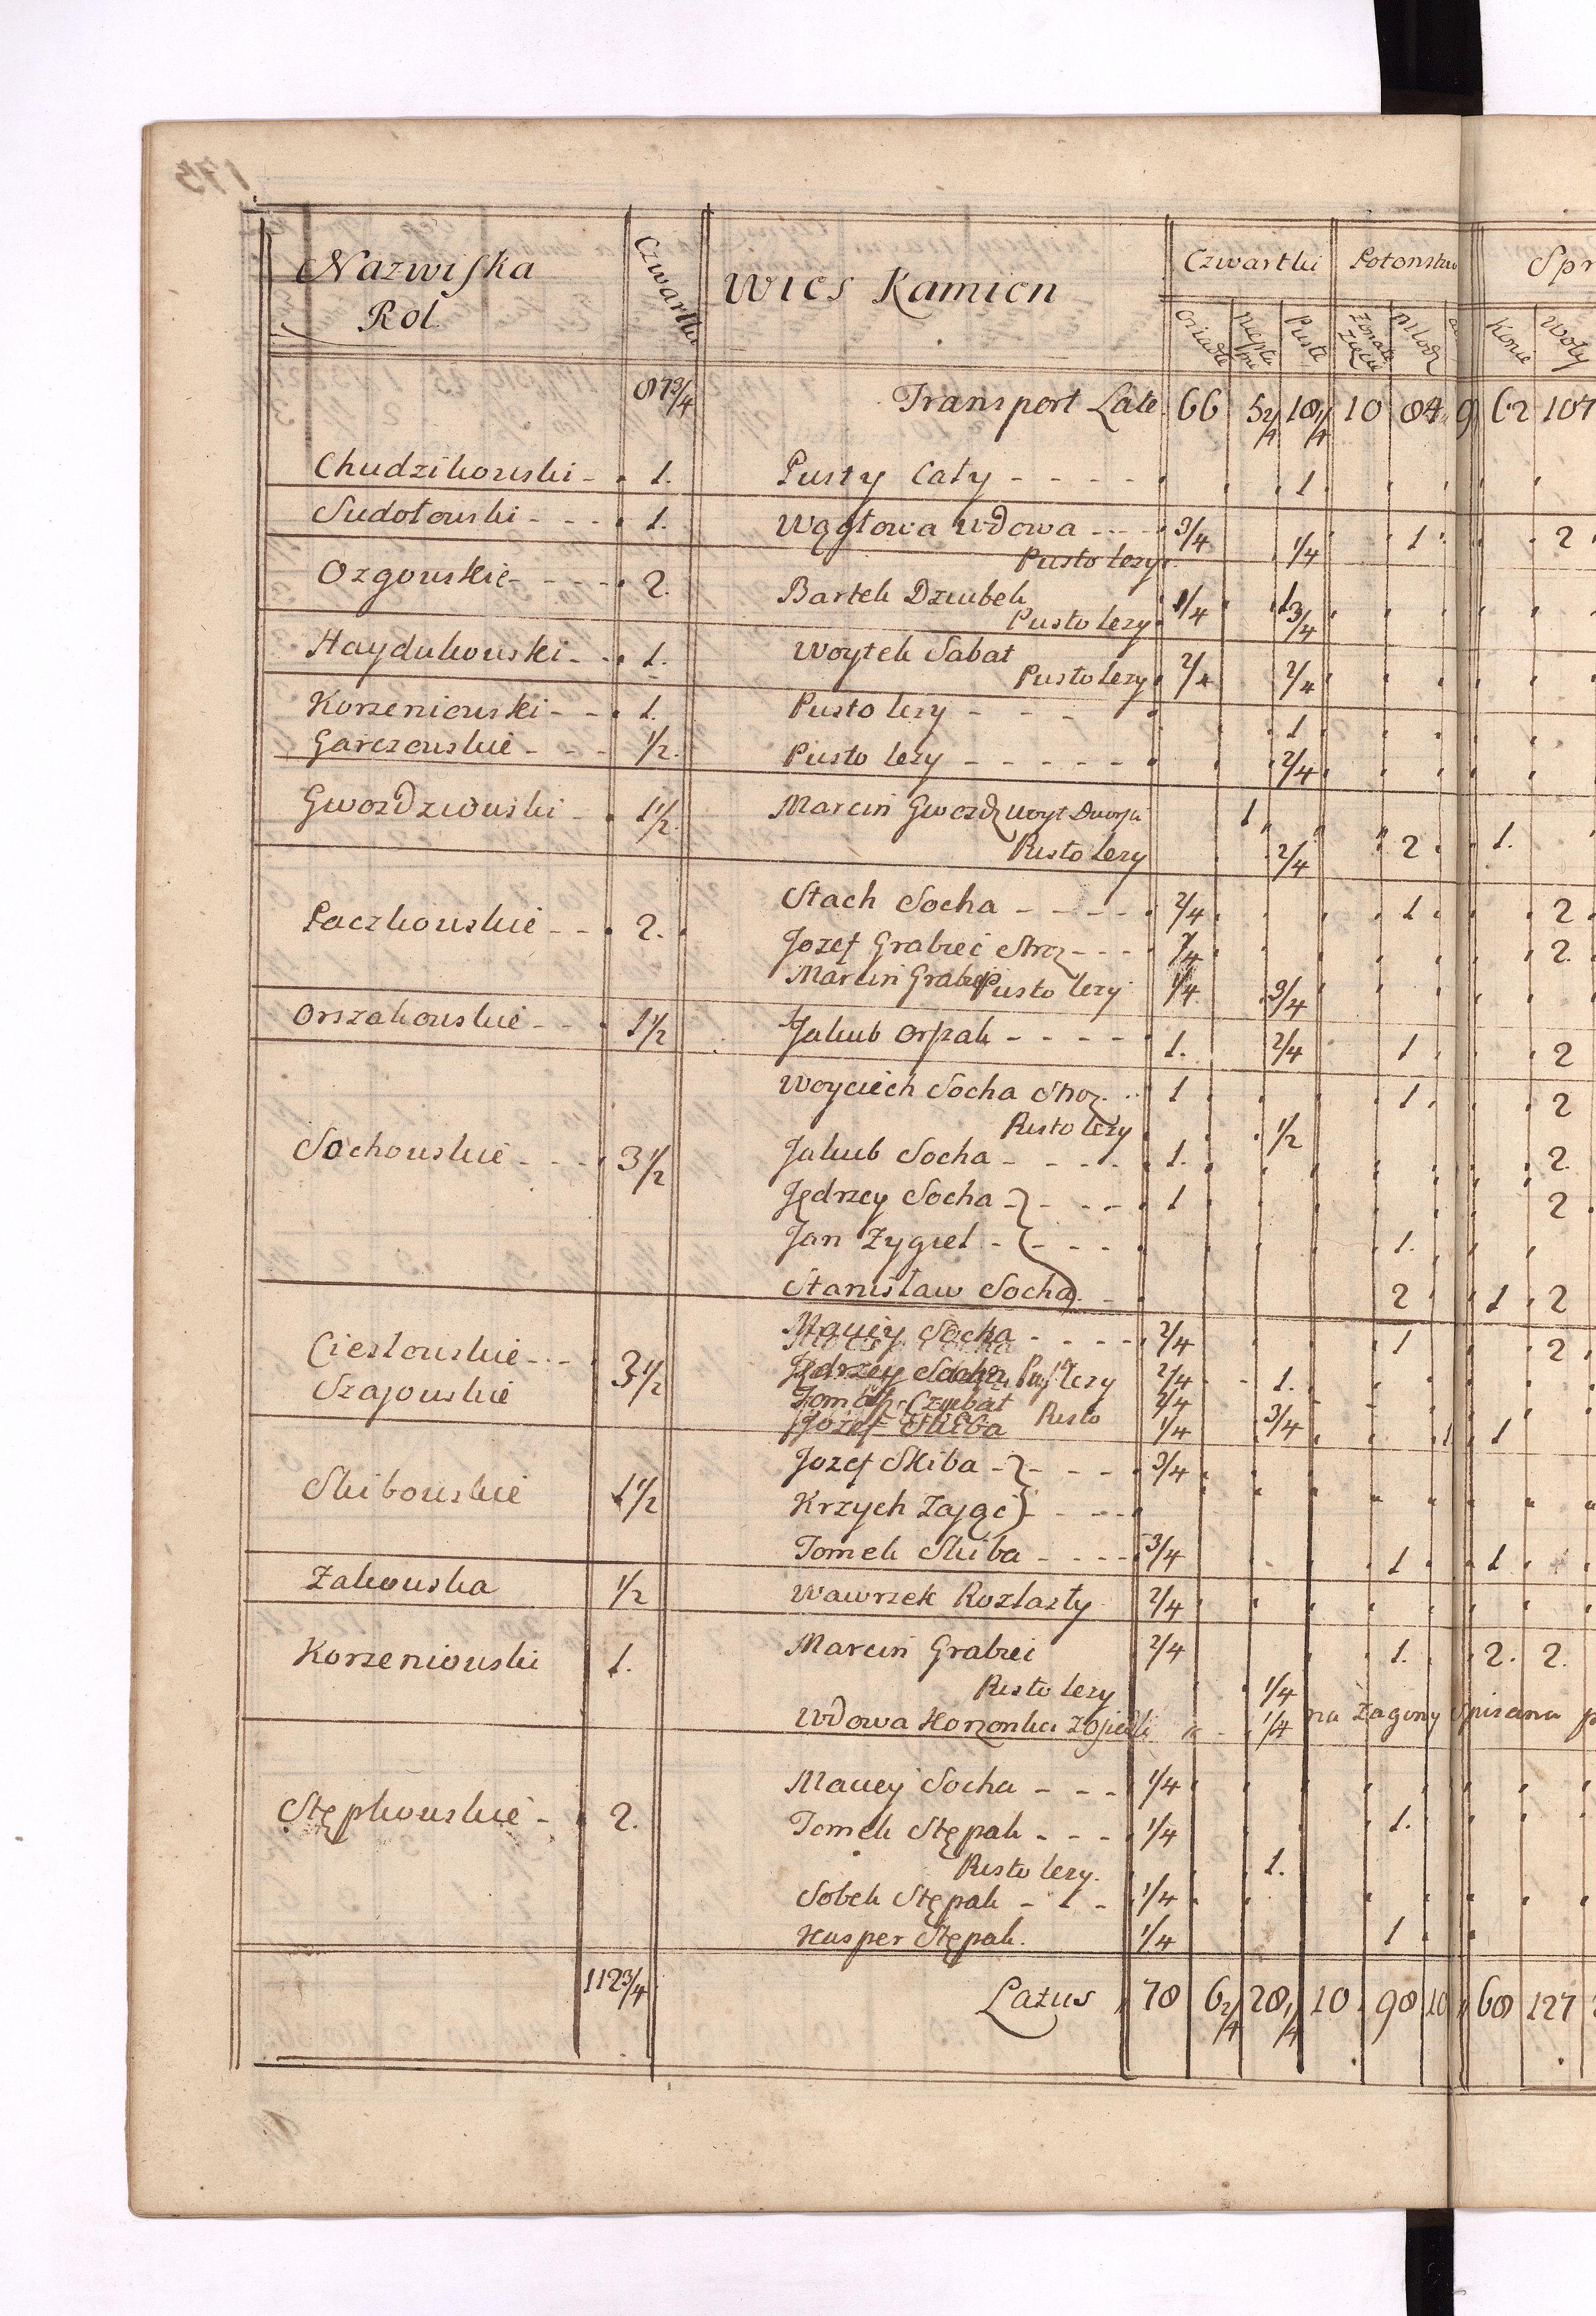 Nazwiska Rol Czwartki Wies Kamien Czwartki Potomstwo Spr
Osiadłe Puste Żonate Zięcie Młodz Konie Woły
87 3/4 Transport Late. 66 5 2/4 18 1/4 10 84 9 62 107
Chudzikowski - 1. Pusty Cały - - - - 1
Sudołowski - - - 1. Wągłowa wdowa - - - 3/4 1/4 1 2
Pusto lezy
Ozgowskie - - - 2. Bartek Dziubek 1/4 1 3/4
Pusto lezy
Haydukowski - - 1. Woytek Sabat 2/4 2/4
Pusto lezy
Korzeniowski - - 1. Pusto lezy - - - 1
Garczowskie - - - 1/2. Pusto lezy - - - - - 2/4
Gwozdziowski - 1 1/2. Marcin Gwozdz Woyt Dworski 1
Pusto lezy 2/4 2 1.
Paczkowskie - - 2. Stach Socha - - - - 2/4 1 2
Jozef Grabiec Stroz - - - 2/4 2.
Marcin Grabiec Pusto lezy 1/4 3/4
Orszakowskie - - 1 1/2 Jakub Orszak - - - - - 1. 2/4 1 2
Woyciech Socha Stroz 1 1 2
Pusto lezy 1/2
Sochowskie - - - 3 1/2 Jakub Socha - - - - 1. 2.
Jędrzey Socha - } - - - 1 2
Jan Zygiel - } - - - 1.
Stanisław Socha } - 2 1 2
Cieslowskie - - - Maciey Socha - - - - 2/4 1 2
Szajowskie 3 1/2 Jędrzey Socha Pusto lezy 2/4 1.
Tomasz Czubat 2/4
Jozef Skiba Pusto 1/4 3/4 1 1
Skibowskie 1 1/2 Jozef Skiba - } - - - 3/4
Krzych Zając } - - - -
Tomek Skiba - - - - 3/4 1 1
Zakowska 1/2 Wawrzek Rozlazły 2/4
Korzeniowski 1. Marcin Grabiei 2/4 1. 2. 2.
Pusto lezy 1/4
Wdowa 1/4 na Zagony spisana
Stępkowskie - 2. Maciey Socha - - - 1/4
Tomek Stępak - - - 1/4 1.
Pusto lezy. 1.
Sobek Stępak - - - 1/4
Kasper Stępak. 1/4 1
112 3/4 Latus 78 6 2/4 28 1/4 10 98 10 68 127